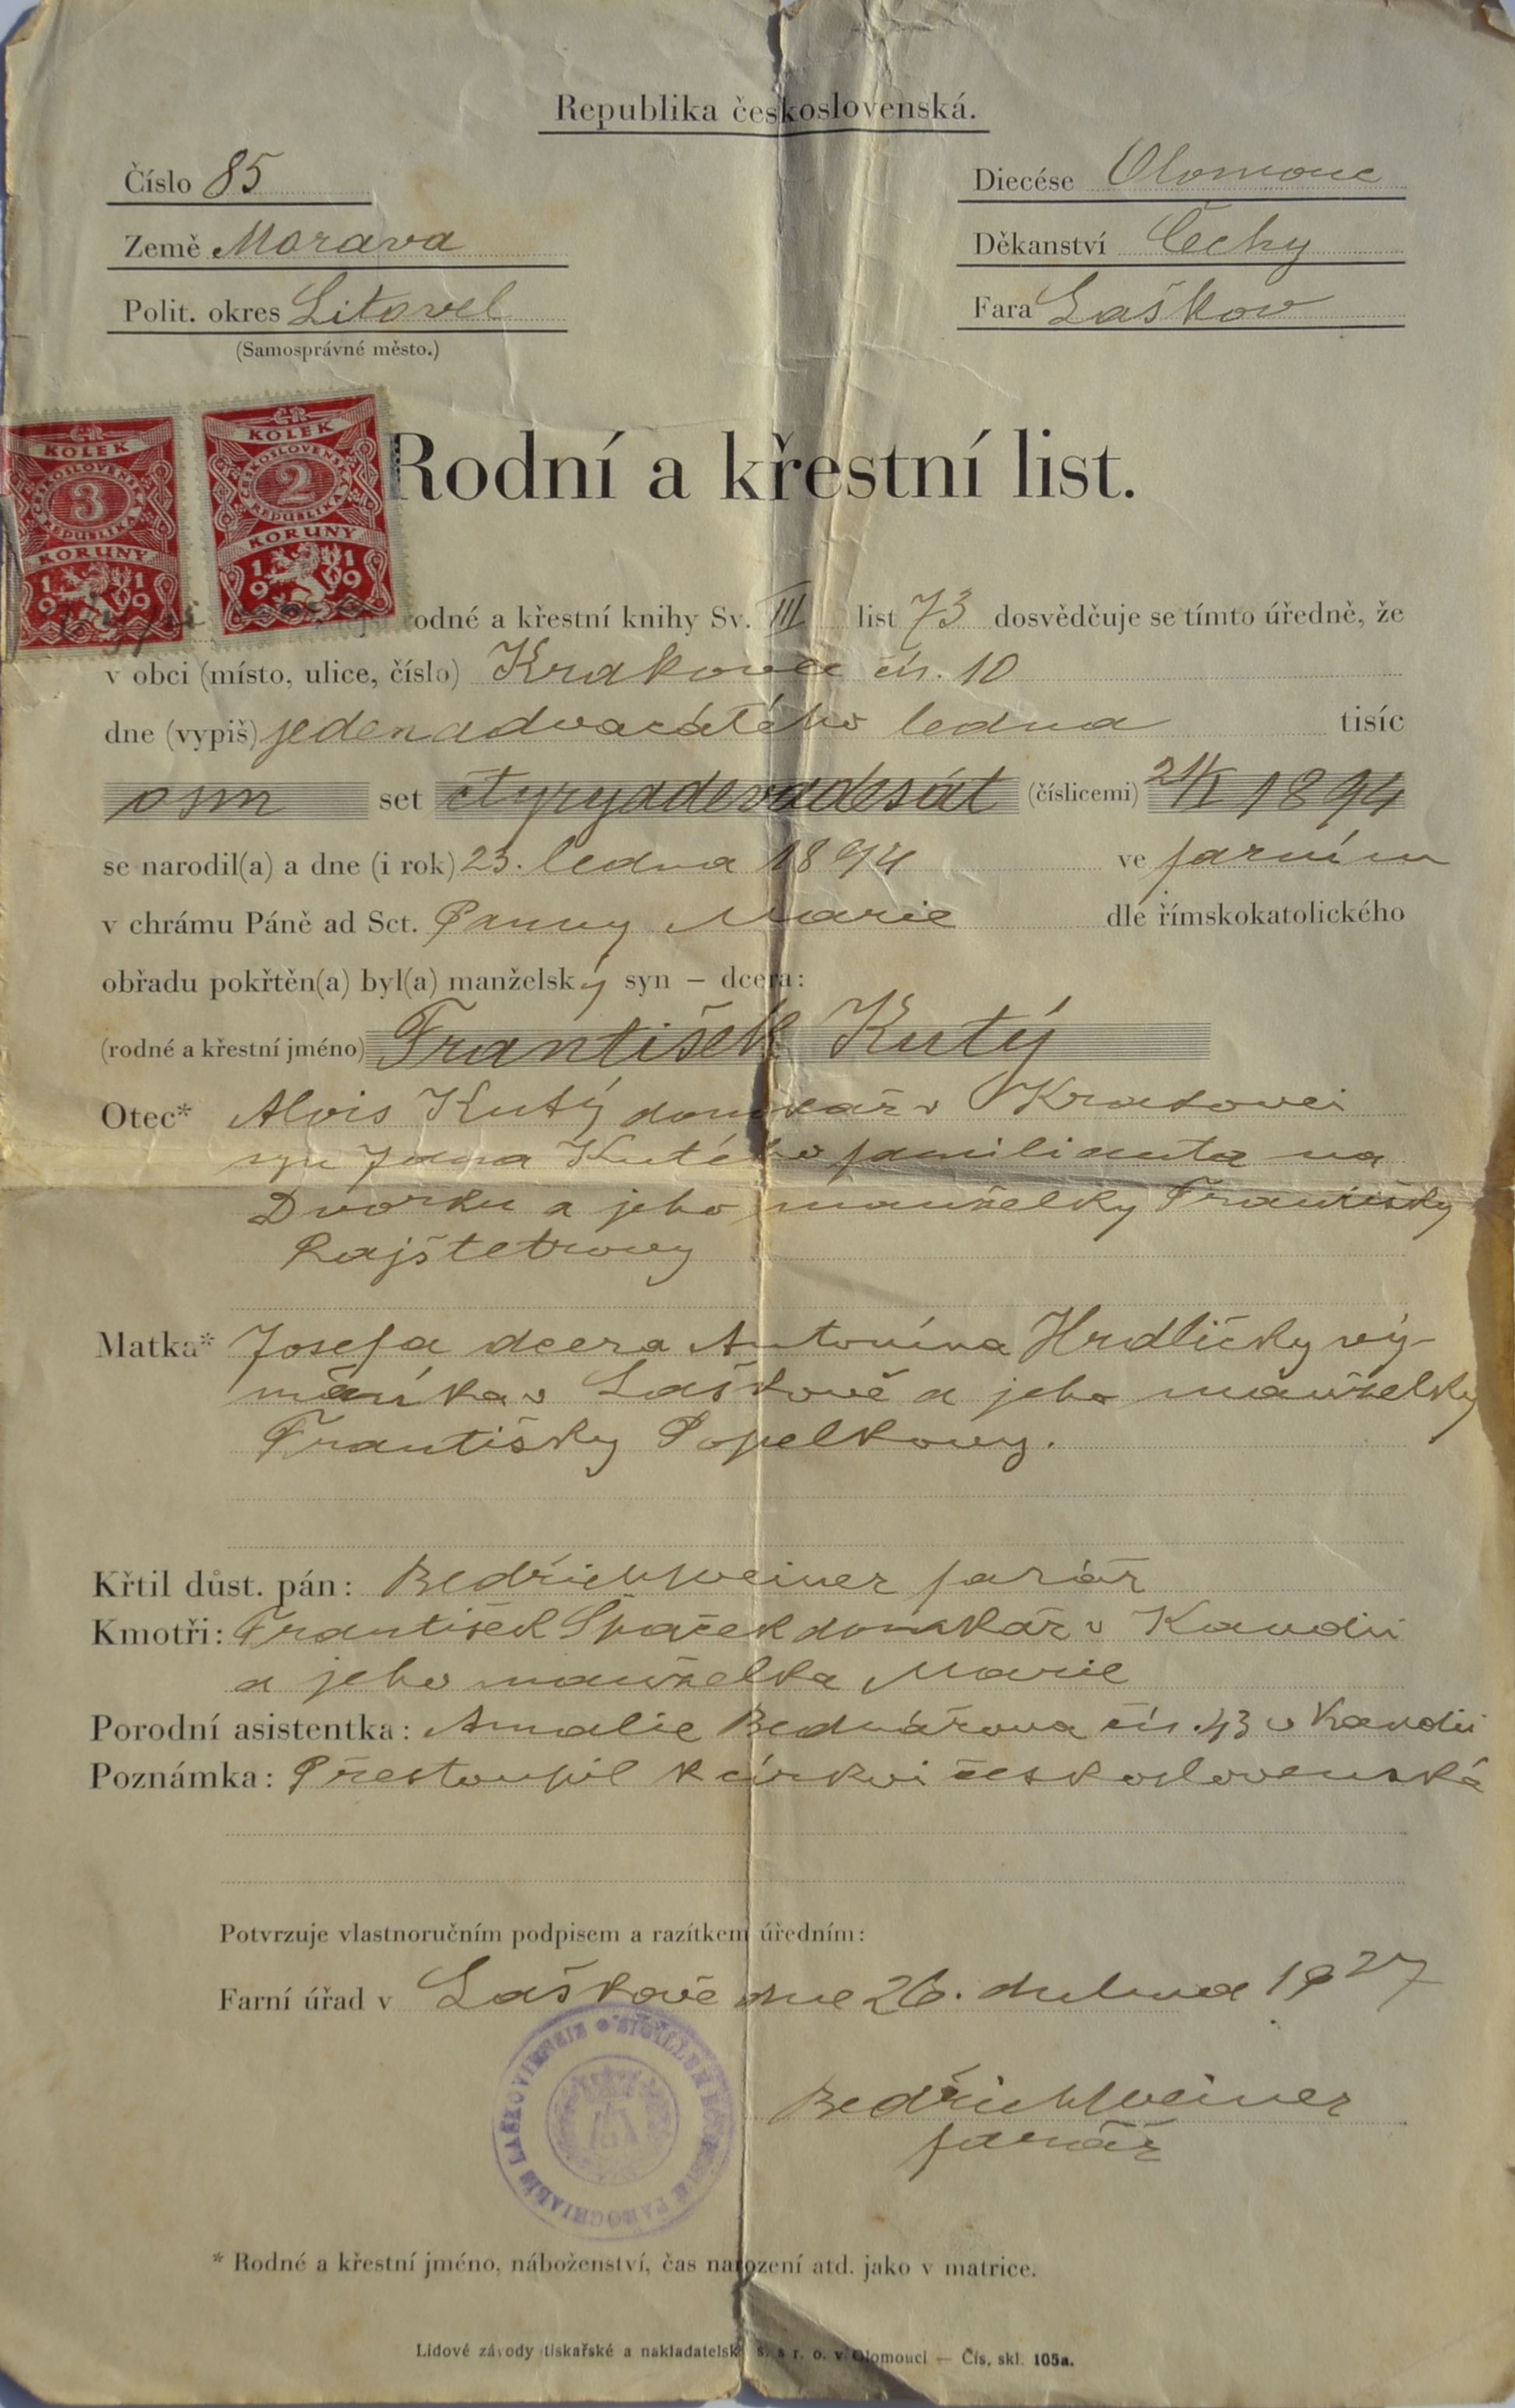 Republika československá.
Číslo 85
Diecése Olomouc
Země Morava
Děkanství Čechy
Polit. okres Litovel
Fara Laškov
(Samosprávné město.)
ČR
KOLEK
ČESKOSLOVENSKÁ
3
REPUBLIKA
KORUNY
1919
ČR
KOLEK
ČESKOSLOVENSKÁ
2
REPUBLIKA
KORUNY
1919
Rodní a křestní list.
odné a křestní knihy Sv. III list 73 dosvědčuje se tímto úředně, že
v obci (místo, ulice, číslo) Krakovec čís. 10
dne (vypiš) jedenadvacátého ledna tisíc
osm set čtyryadevadesát (číslicemi) 21/I 1894
se narodil(a) a dne (i rok) 23. ledna 1894 ve farním
v chrámu Páně ad Sct. Panny Marie dle římskokatolického
obřadu pokřtěn(a) byl(a) manželský syn – dcera:
(rodné a křestní jméno) František Kutý
Otec* Alois Kutý domkář v Krakovci
syn Jana Kutého familianta na
Dvorku a jeho manželky Františky
Rajštetrovy
Matka* Josefa dcera Antonína Hrdličky vý-
měnka v Laškově a jeho manželky
Františky Popelkovy.
Křtil důst. pán: Bedřich Weiner farář
Kmotři: František Špaček domkář v Kandii
a jeho manželka Marie
Porodní asistentka: Amalie Bednářova čís. 43 v Kandii
Poznámka: Přestoupil k církvi československé
Potvrzuje vlastnoručním podpisem a razítkem úředním:
Farní úřad v Laškově dne 26. dubna 1927
SIGILLUM PAROCHIALIS LAŠKOVIENSIS
Bedřich Weiner
farář
* Rodné a křestní jméno, náboženství, čas narození atd. jako v matrice.
Lidové závody tiskařské a nakladatelské s. s r. o. v Olomouci — Čís. skl. 105a.